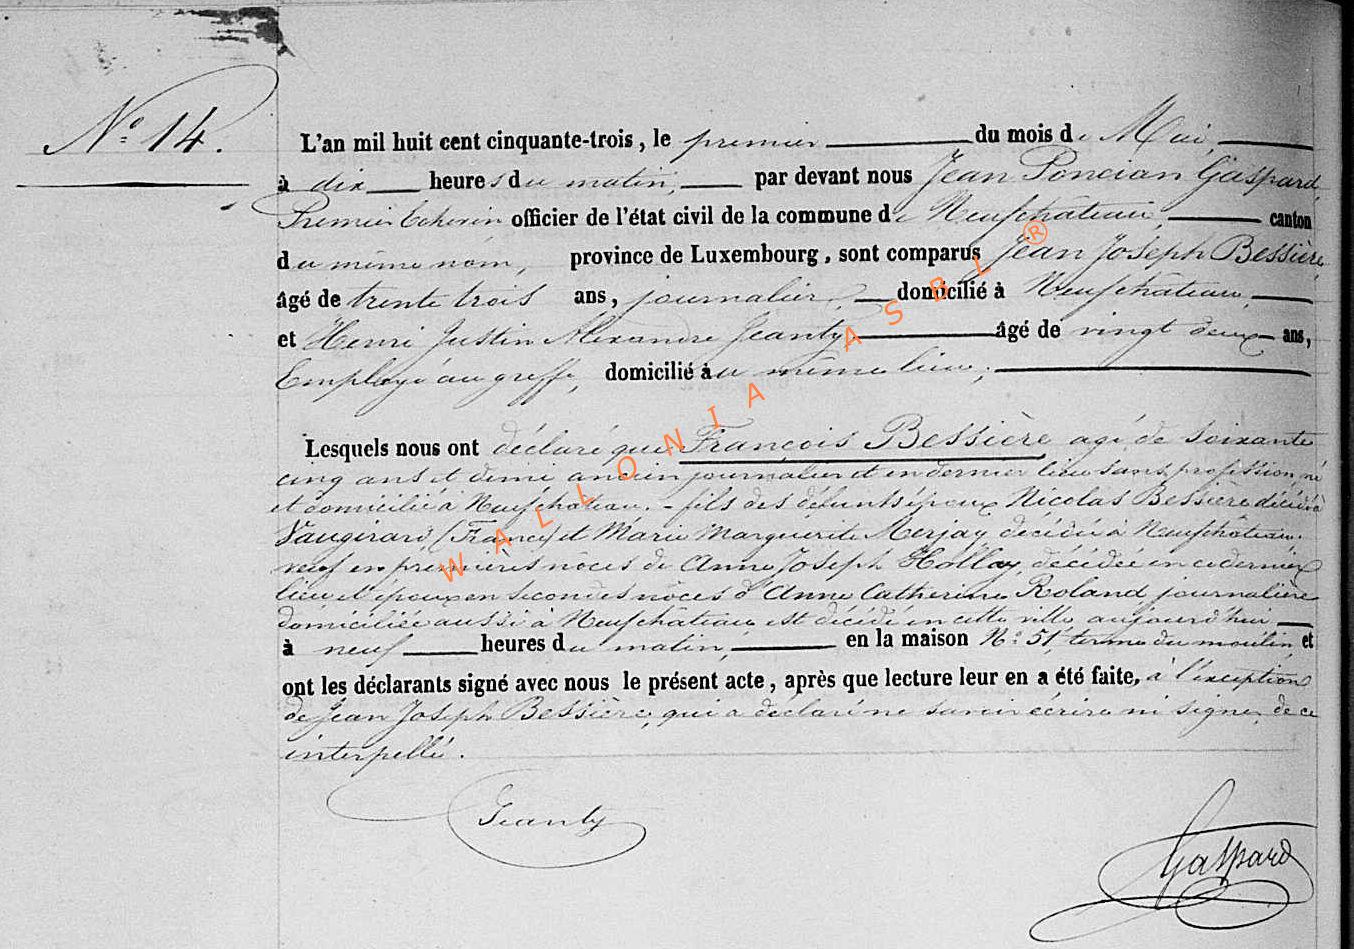 N° 14.
L'an mil huit cent cinquante-trois, le premier du mois de Mai,
à dix heures du matin, par devant nous Jean Poncian Gaspard,
Premier Echevin officier de l'état civil de la commune de Neufchâteau, canton
du même nom, province de Luxembourg, sont comparus Jean Joseph Bessière
âgé de trente trois ans, journalier, domicilié à Neufchâteau,
et Henri Justin Alexandre Jeanty âgé de vingt deux ans,
Employé au greffe, domicilié au même lieu;
Lesquels nous ont déclaré que François Bessière agé de soixante
cinq ans et demi ancien journalier et en dernier lieu sans profession, né
et domicilié à Neufchâteau. - fils des défunts époux Nicolas Bessière décédé à
Vaugirard (France) et Marie Marguérite Merjay décédée à Neufchâteau.
veuf en premières nôces de Anne Joseph Hollay, décédée en ce dernier
lieu et époux en secondes nôces d'Anne Catherine Roland journalière
domiciliée aussi à Neufchâteau, est décédé en cette ville aujourd'hui
à neuf heures du matin, en la maison N° 51, terme du moulin, et
ont les déclarants signé avec nous le présent acte, après que lecture leur en a été faite, à l'exception
de Jean Joseph Bessière, qui a déclaré ne savoir écrire ni signer, de ce
interpellé.
Jeanty
Gaspard
WALLONIA ASBL ®